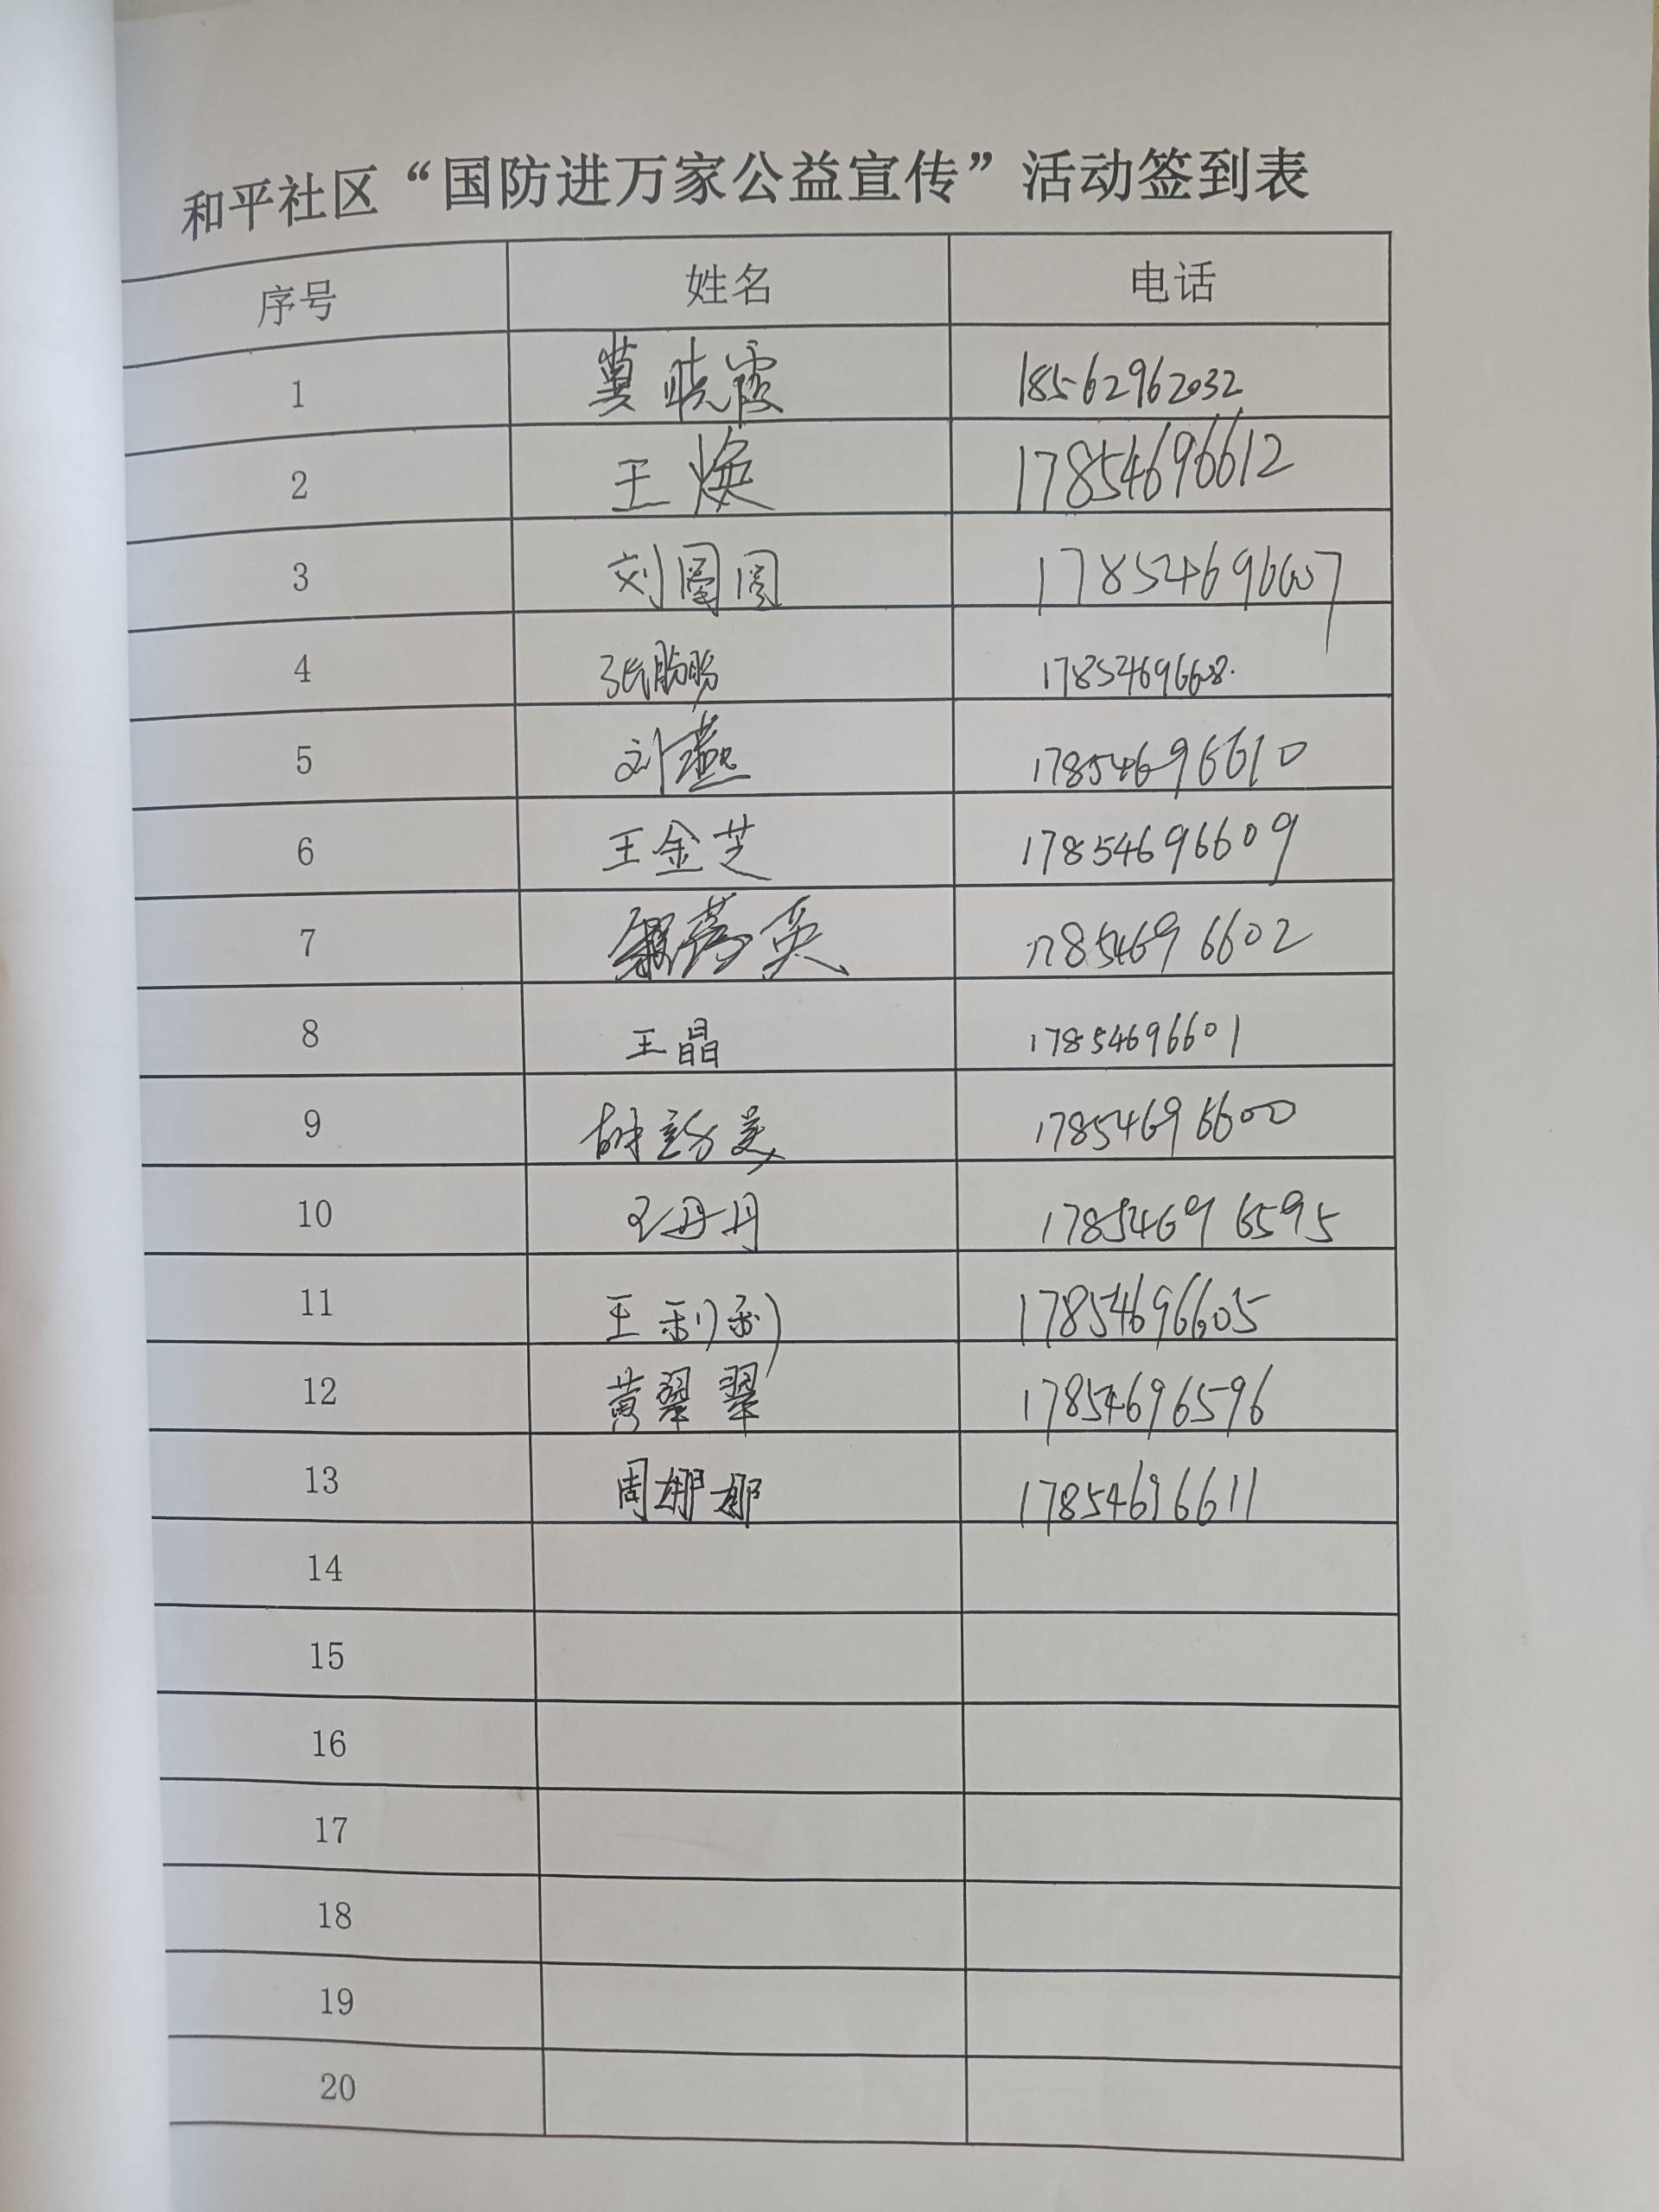 和平社区“国防进万家公益宣传”活动签到表
序号 姓名 电话
1 冀晓霞 18562962032
2 王焕 17854696612
3 刘园园 17854696607
4 张盼盼 17854696608
5 刘燕 17854696610
6 王金芝 17854696609
7 英 17854696602
8 王晶 17854696601
9 胡 美 17854696600
10 王丹丹 17854696595
11 王利利 17854696605
12 黄翠翠 17854696596
13 周娜娜 17854696611
14
15
16
17
18
19
20